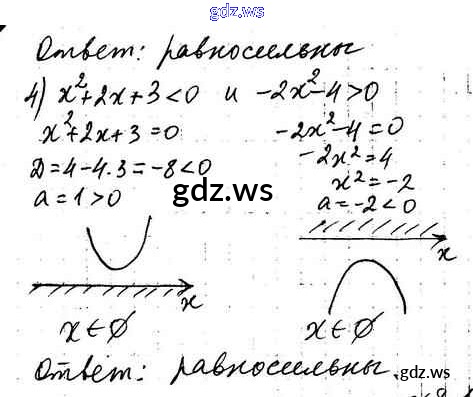 gdz.ws
Ответ: равносильны
4) x²+2x+3<0 и -2x²-4>0
x²+2x+3=0
D=4-4·3=-8<0
a=1>0
x
x∈∅
-2x²-4=0
-2x²=4
x²=-2
a=-2<0
x
x∈∅
gdz.ws
Ответ: равносильны.
gdz.ws